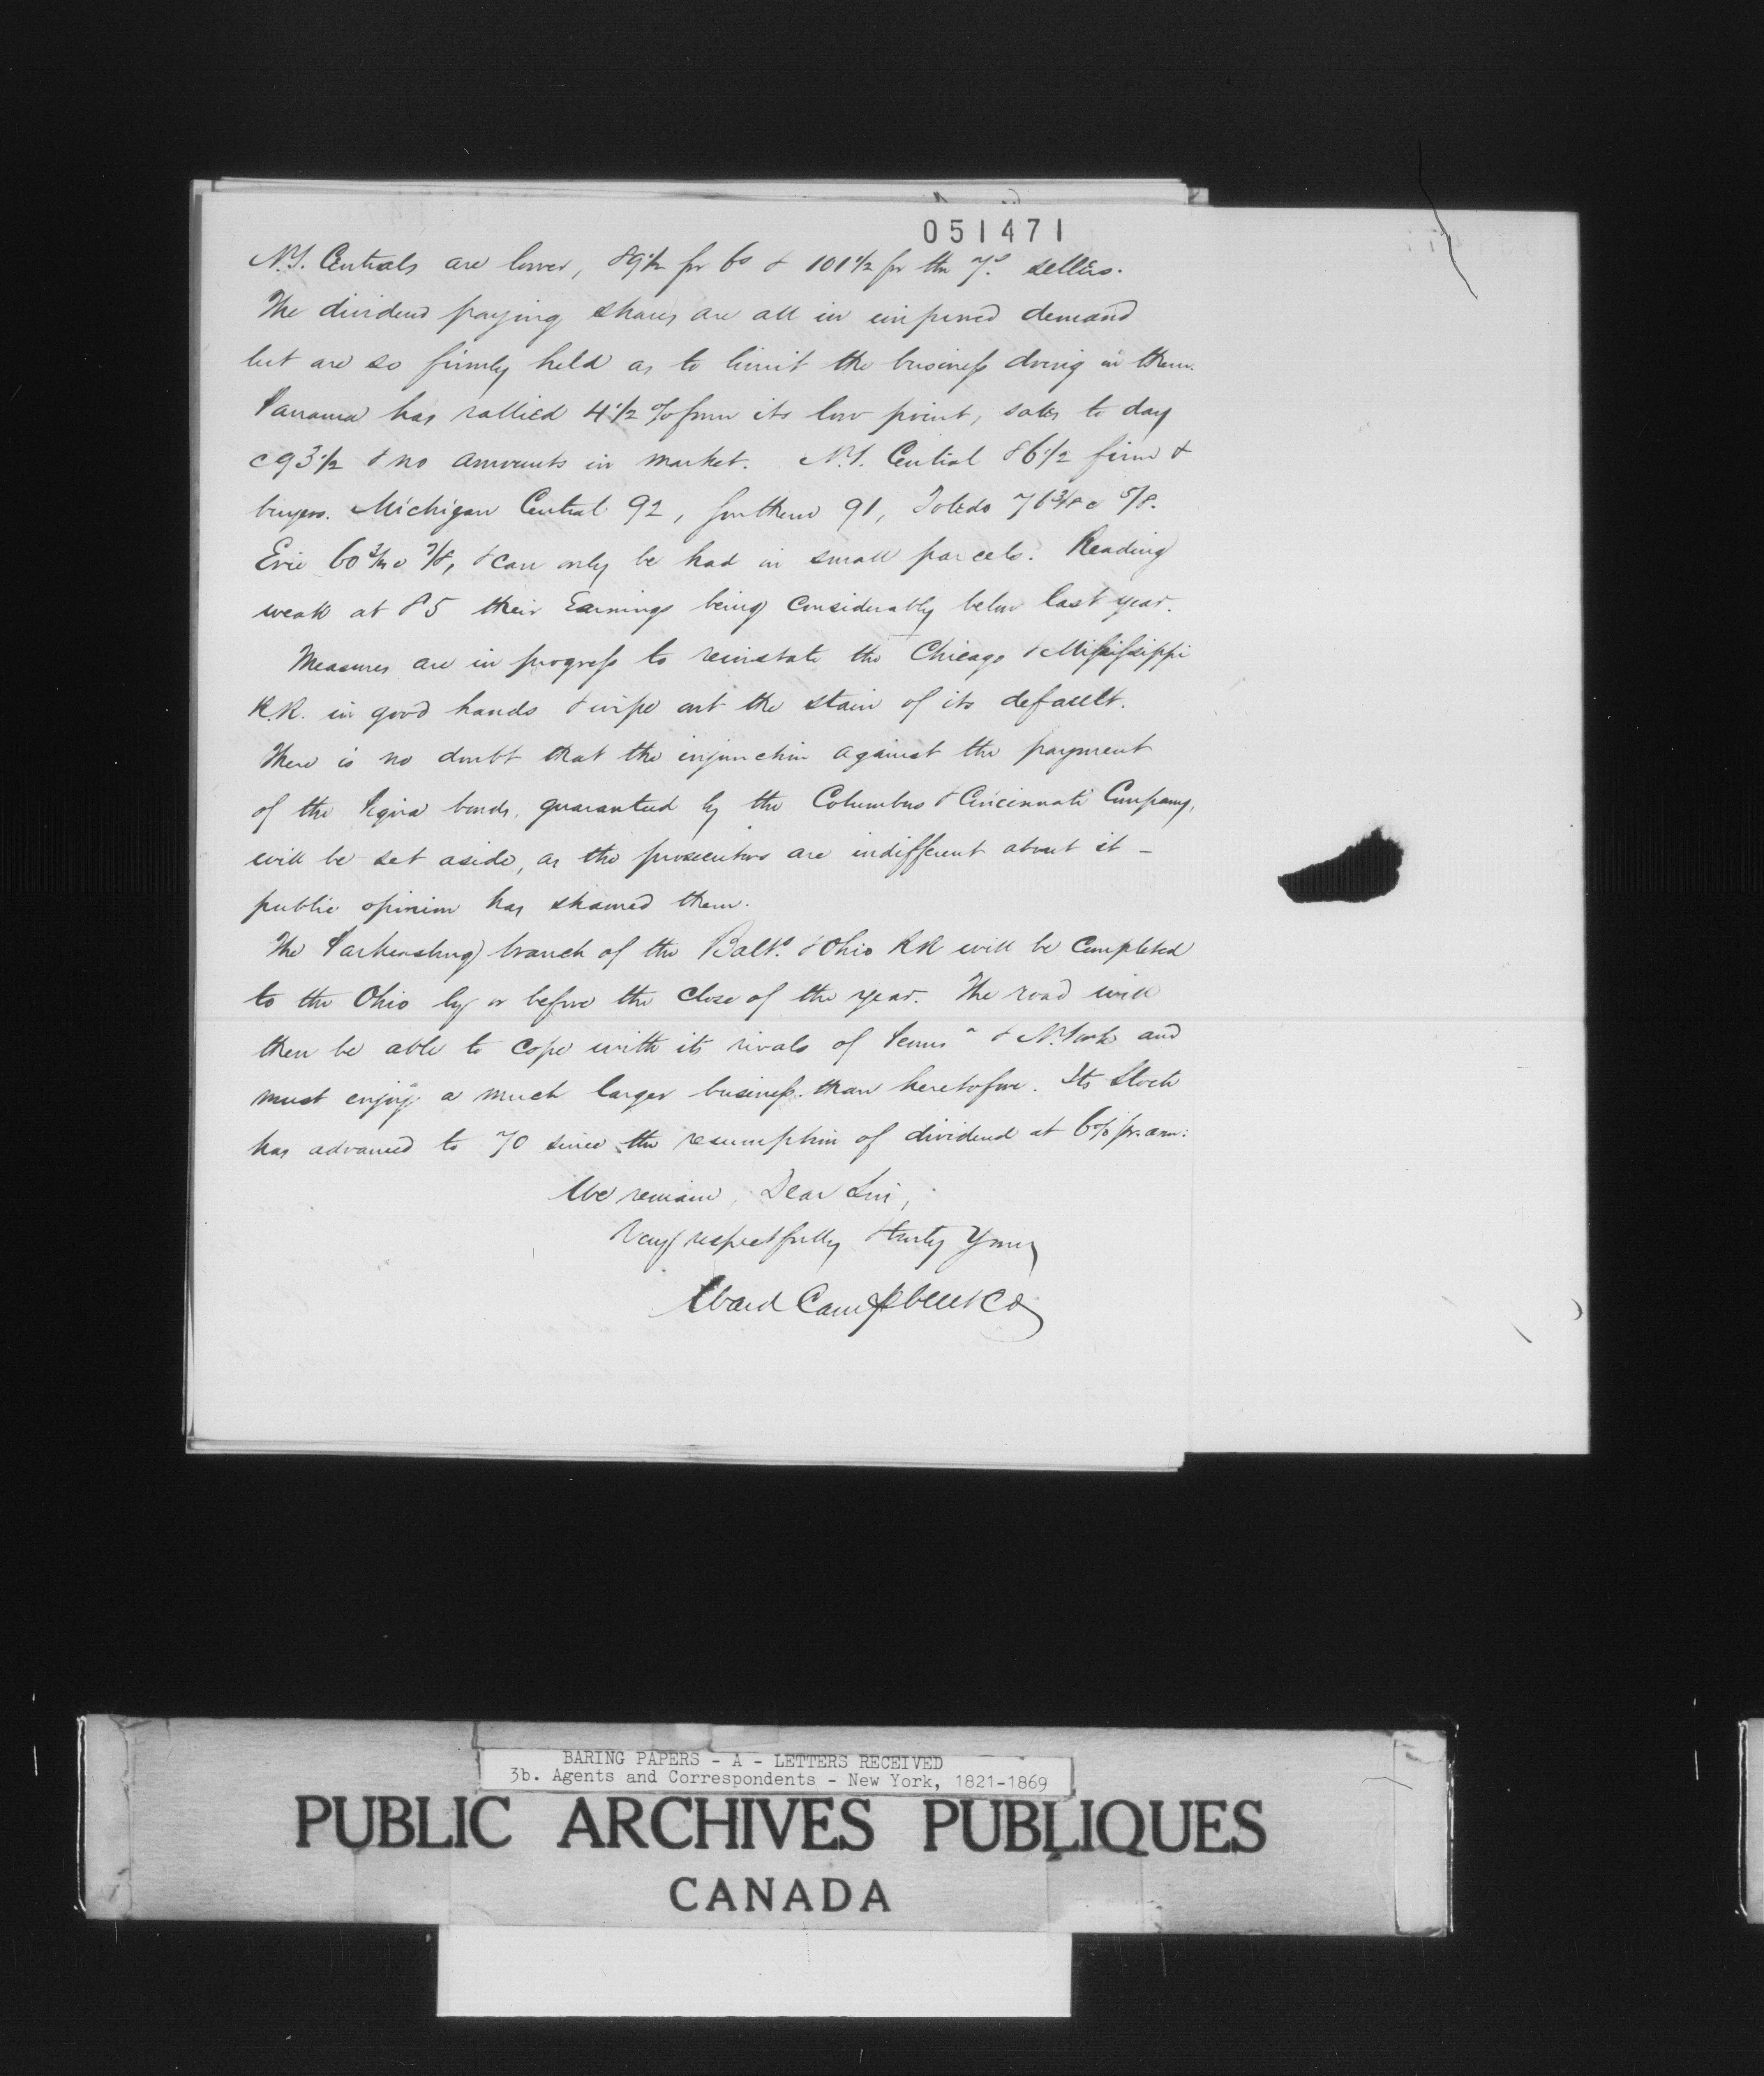 051471
N.Y. Centrals are lower, 89½ for 6s & 101½ for the 7s. sellers.
The dividend paying shares are all in improved demand
but are so firmly held as to limit the business doing in them.
Panama has rallied 4½ % from its low point, sales to day
@ 93½ & no amounts in market. N.Y. Central 86½ firm &
buyers. Michigan Central 92, Southern 91, Toledo 76 3/8 @ 5/8.
Erie 60 3/4 @ 7/8, & can only be had in small parcels. Reading
weak at 85 their Earnings being considerably below last year.
Measures are in progress to reinstate the Chicago & Mississippi
R.R. in good hands & wipe out the stain of its default.
There is no doubt that the injunction against the payment
of the bonds, guaranteed by the Columbus & Cincinnati Company,
will be set aside, as the prosecutors are indifferent about it –
public opinion has shamed them.
The Parkersburg branch of the Balto. & Ohio RR will be completed
to the Ohio by or before the close of the year. The road will
then be able to cope with its rivals of Penna & N. York and
must enjoy a much larger business than heretofore. Its Stock
has advanced to 70 since the resumption of dividend at 6% pr. ann:
We remain, Dear Sir,
Very respectfully & truly Yours
Ward Campbell & Co
BARING PAPERS - A - LETTERS RECEIVED
3b. Agents and Correspondents - New York, 1821-1869
PUBLIC ARCHIVES PUBLIQUES
CANADA